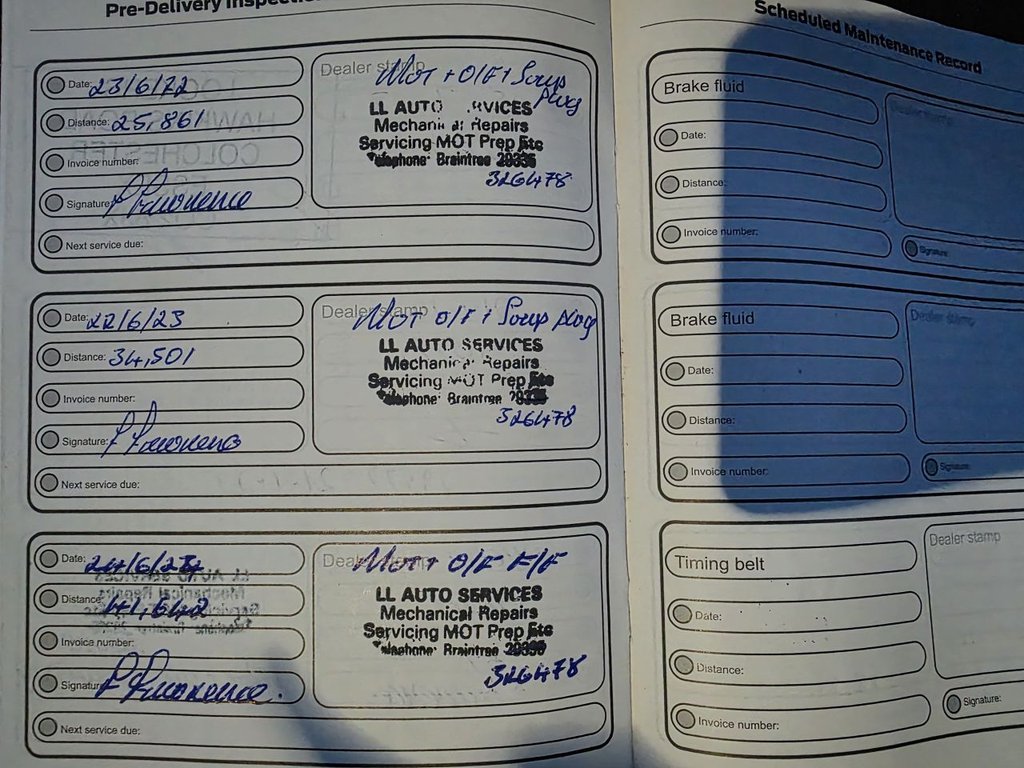 Pre-Delivery Inspection
Date: 23/6/22
Distance: 25,861
Invoice number:
Signature:
Next service due:
Dealer stamp
MOT + O/F + Sump
plug
LL AUTO SERVICES
Mechanical Repairs
Servicing MOT Prep Etc
Telephone: Braintree
326478
Date: 22/6/23
Distance: 34,501
Invoice number:
Signature:
Next service due:
Dealer stamp
MOT O/F + Sump plug
LL AUTO SERVICES
Mechanical Repairs
Servicing MOT Prep Etc
Telephone: Braintree
326478
Date: 24/6/24
Distance: 41,642
Invoice number:
Signature:
Next service due:
Dealer stamp
MOT + O/F F/F
LL AUTO SERVICES
Mechanical Repairs
Servicing MOT Prep Etc
Telephone: Braintree
326478
Scheduled Maintenance Record
Brake fluid
Date:
Distance:
Invoice number:
Dealer stamp
Signature:
Brake fluid
Date:
Distance:
Invoice number:
Dealer stamp
Signature:
Timing belt
Date:
Distance:
Invoice number:
Dealer stamp
Signature: